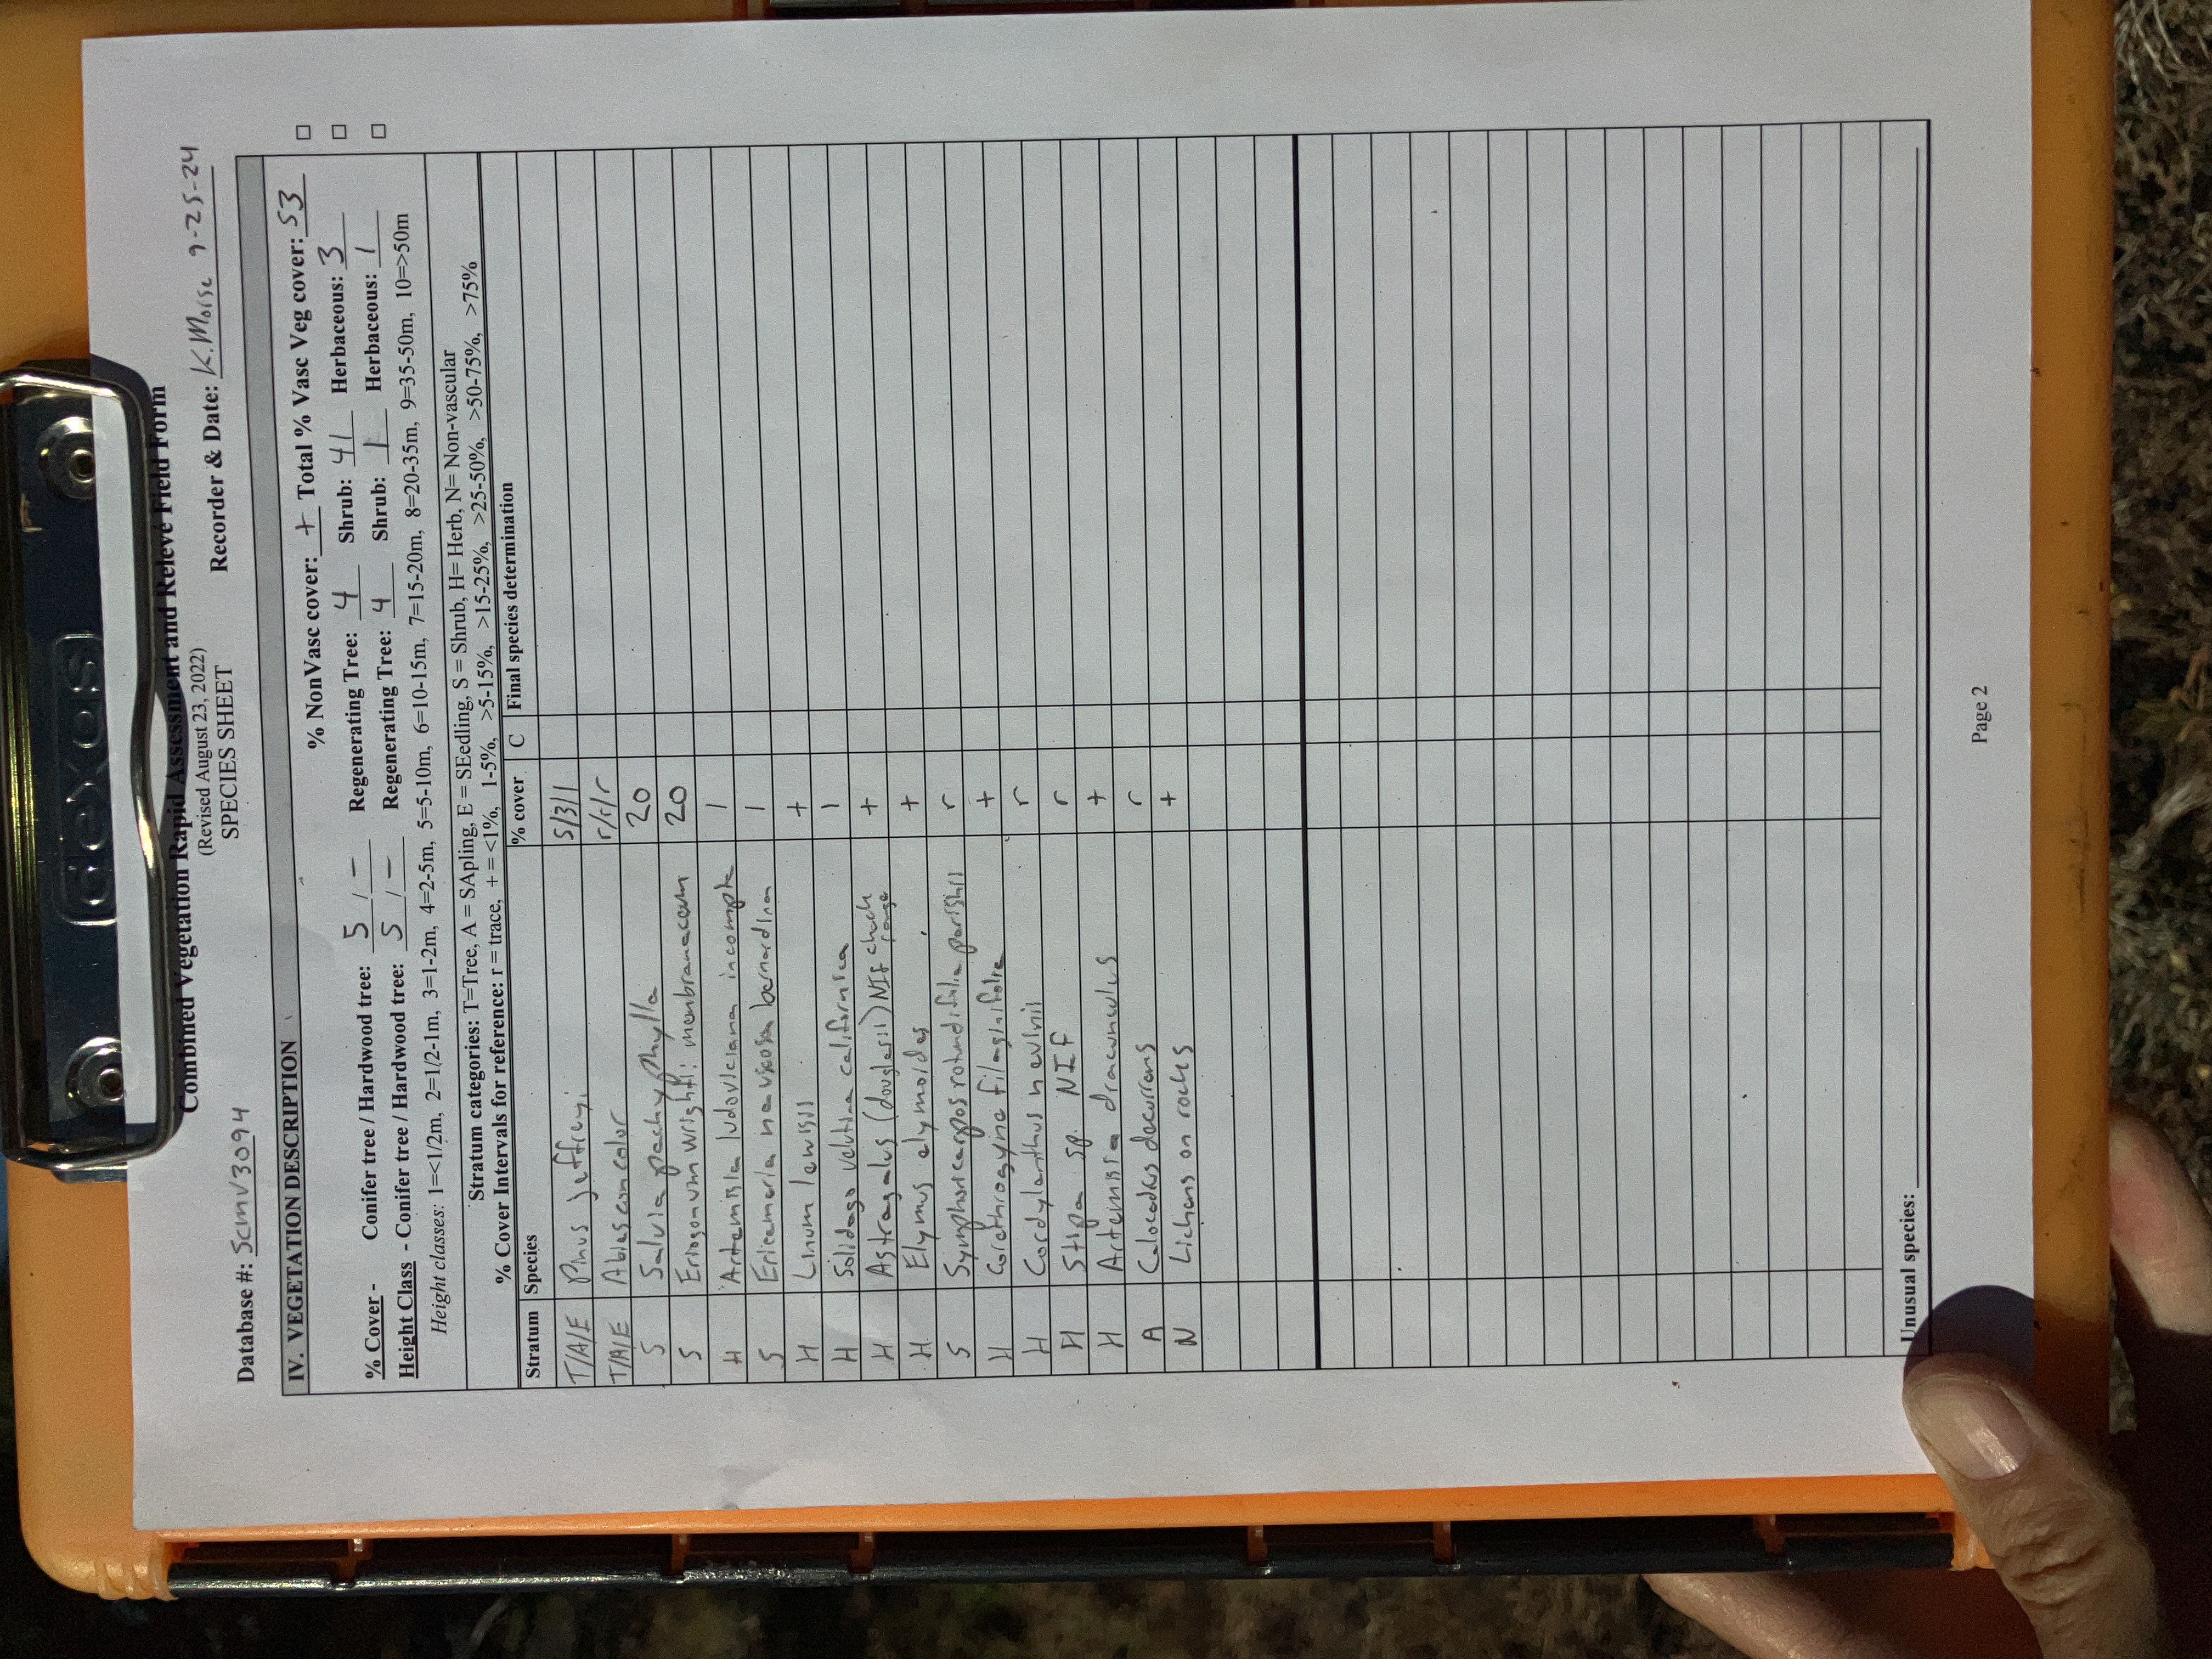 dexos
Combined Vegetation Rapid Assessment and Relevé Field Form
(Revised August 23, 2022)
SPECIES SHEET
Database #: ScmV3094 Recorder & Date: K.Morse 9-25-24
IV. VEGETATION DESCRIPTION
% NonVasc cover: + Total % Vasc Veg cover: 53
% Cover - Conifer tree / Hardwood tree: 5 / - Regenerating Tree: 4 Shrub: 41 Herbaceous: 3
Height Class - Conifer tree / Hardwood tree: 5 / - Regenerating Tree: 4 Shrub: 1 Herbaceous: 1
Height classes: 1=<1/2m, 2=1/2-1m, 3=1-2m, 4=2-5m, 5=5-10m, 6=10-15m, 7=15-20m, 8=20-35m, 9=35-50m, 10=>50m
Stratum categories: T=Tree, A = SApling, E = SEedling, S = Shrub, H= Herb, N= Non-vascular
% Cover Intervals for reference: r = trace, + = <1%, 1-5%, >5-15%, >15-25%, >25-50%, >50-75%, >75%
Stratum Species % cover C Final species determination
T/A/E Pinus jeffreyi 5/3/1
T/A/E Abies concolor r/r/r
S Salvia pachyphylla 20
S Eriogonum wrightii membranaceum 20
H Artemisia ludoviciana incompta 1
S Ericameria nauseosa bernardina 1
H Linum lewisii +
H Solidago velutina californica 1
H Astragalus (douglasii) NIF check range +
H Elymus elymoides +
S Symphoricarpos rotundifolia parishii r
H Corethrogyne filaginifolia +
H Cordylanthus nevinii r
H Stipa sp. NIF r
H Artemisia dracunculus +
A Calocedrus decurrens r
N Lichens on rocks +
Unusual species:
Page 2